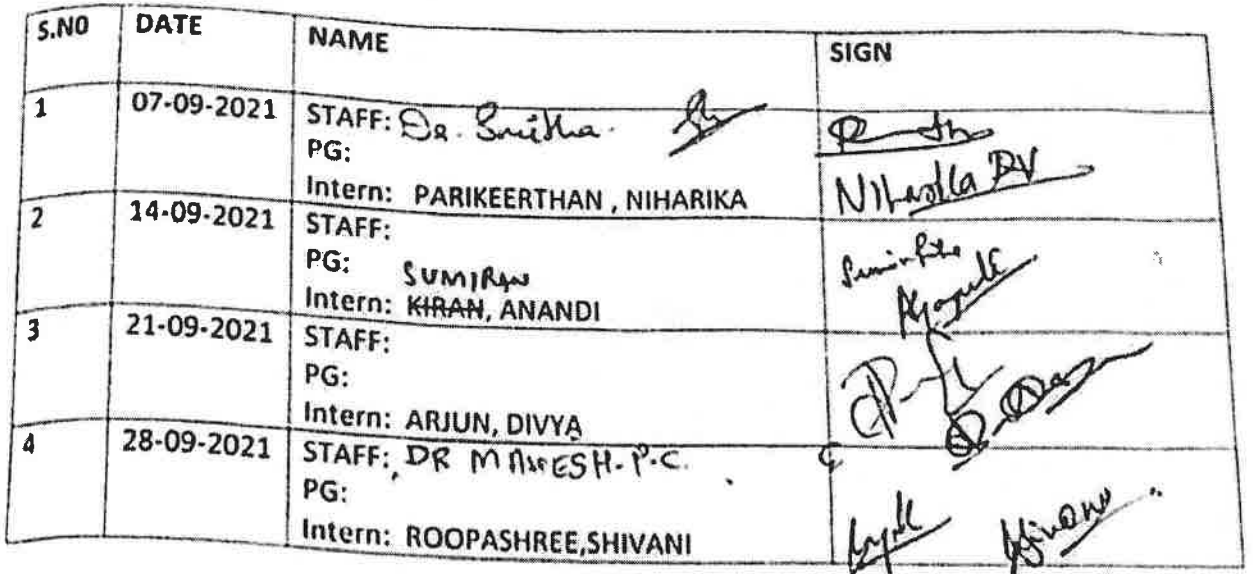 S.NO DATE NAME SIGN
1 07-09-2021 STAFF: Dr. Smitha.
PG:
Intern: PARIKEERTHAN , NIHARIKA Niharika RV
2 14-09-2021 STAFF:
PG: SUMIRAN
Intern: KIRAN, ANANDI
3 21-09-2021 STAFF:
PG:
Intern: ARJUN, DIVYA
4 28-09-2021 STAFF: DR MAHESH.P.C.
PG:
Intern: ROOPASHREE,SHIVANI